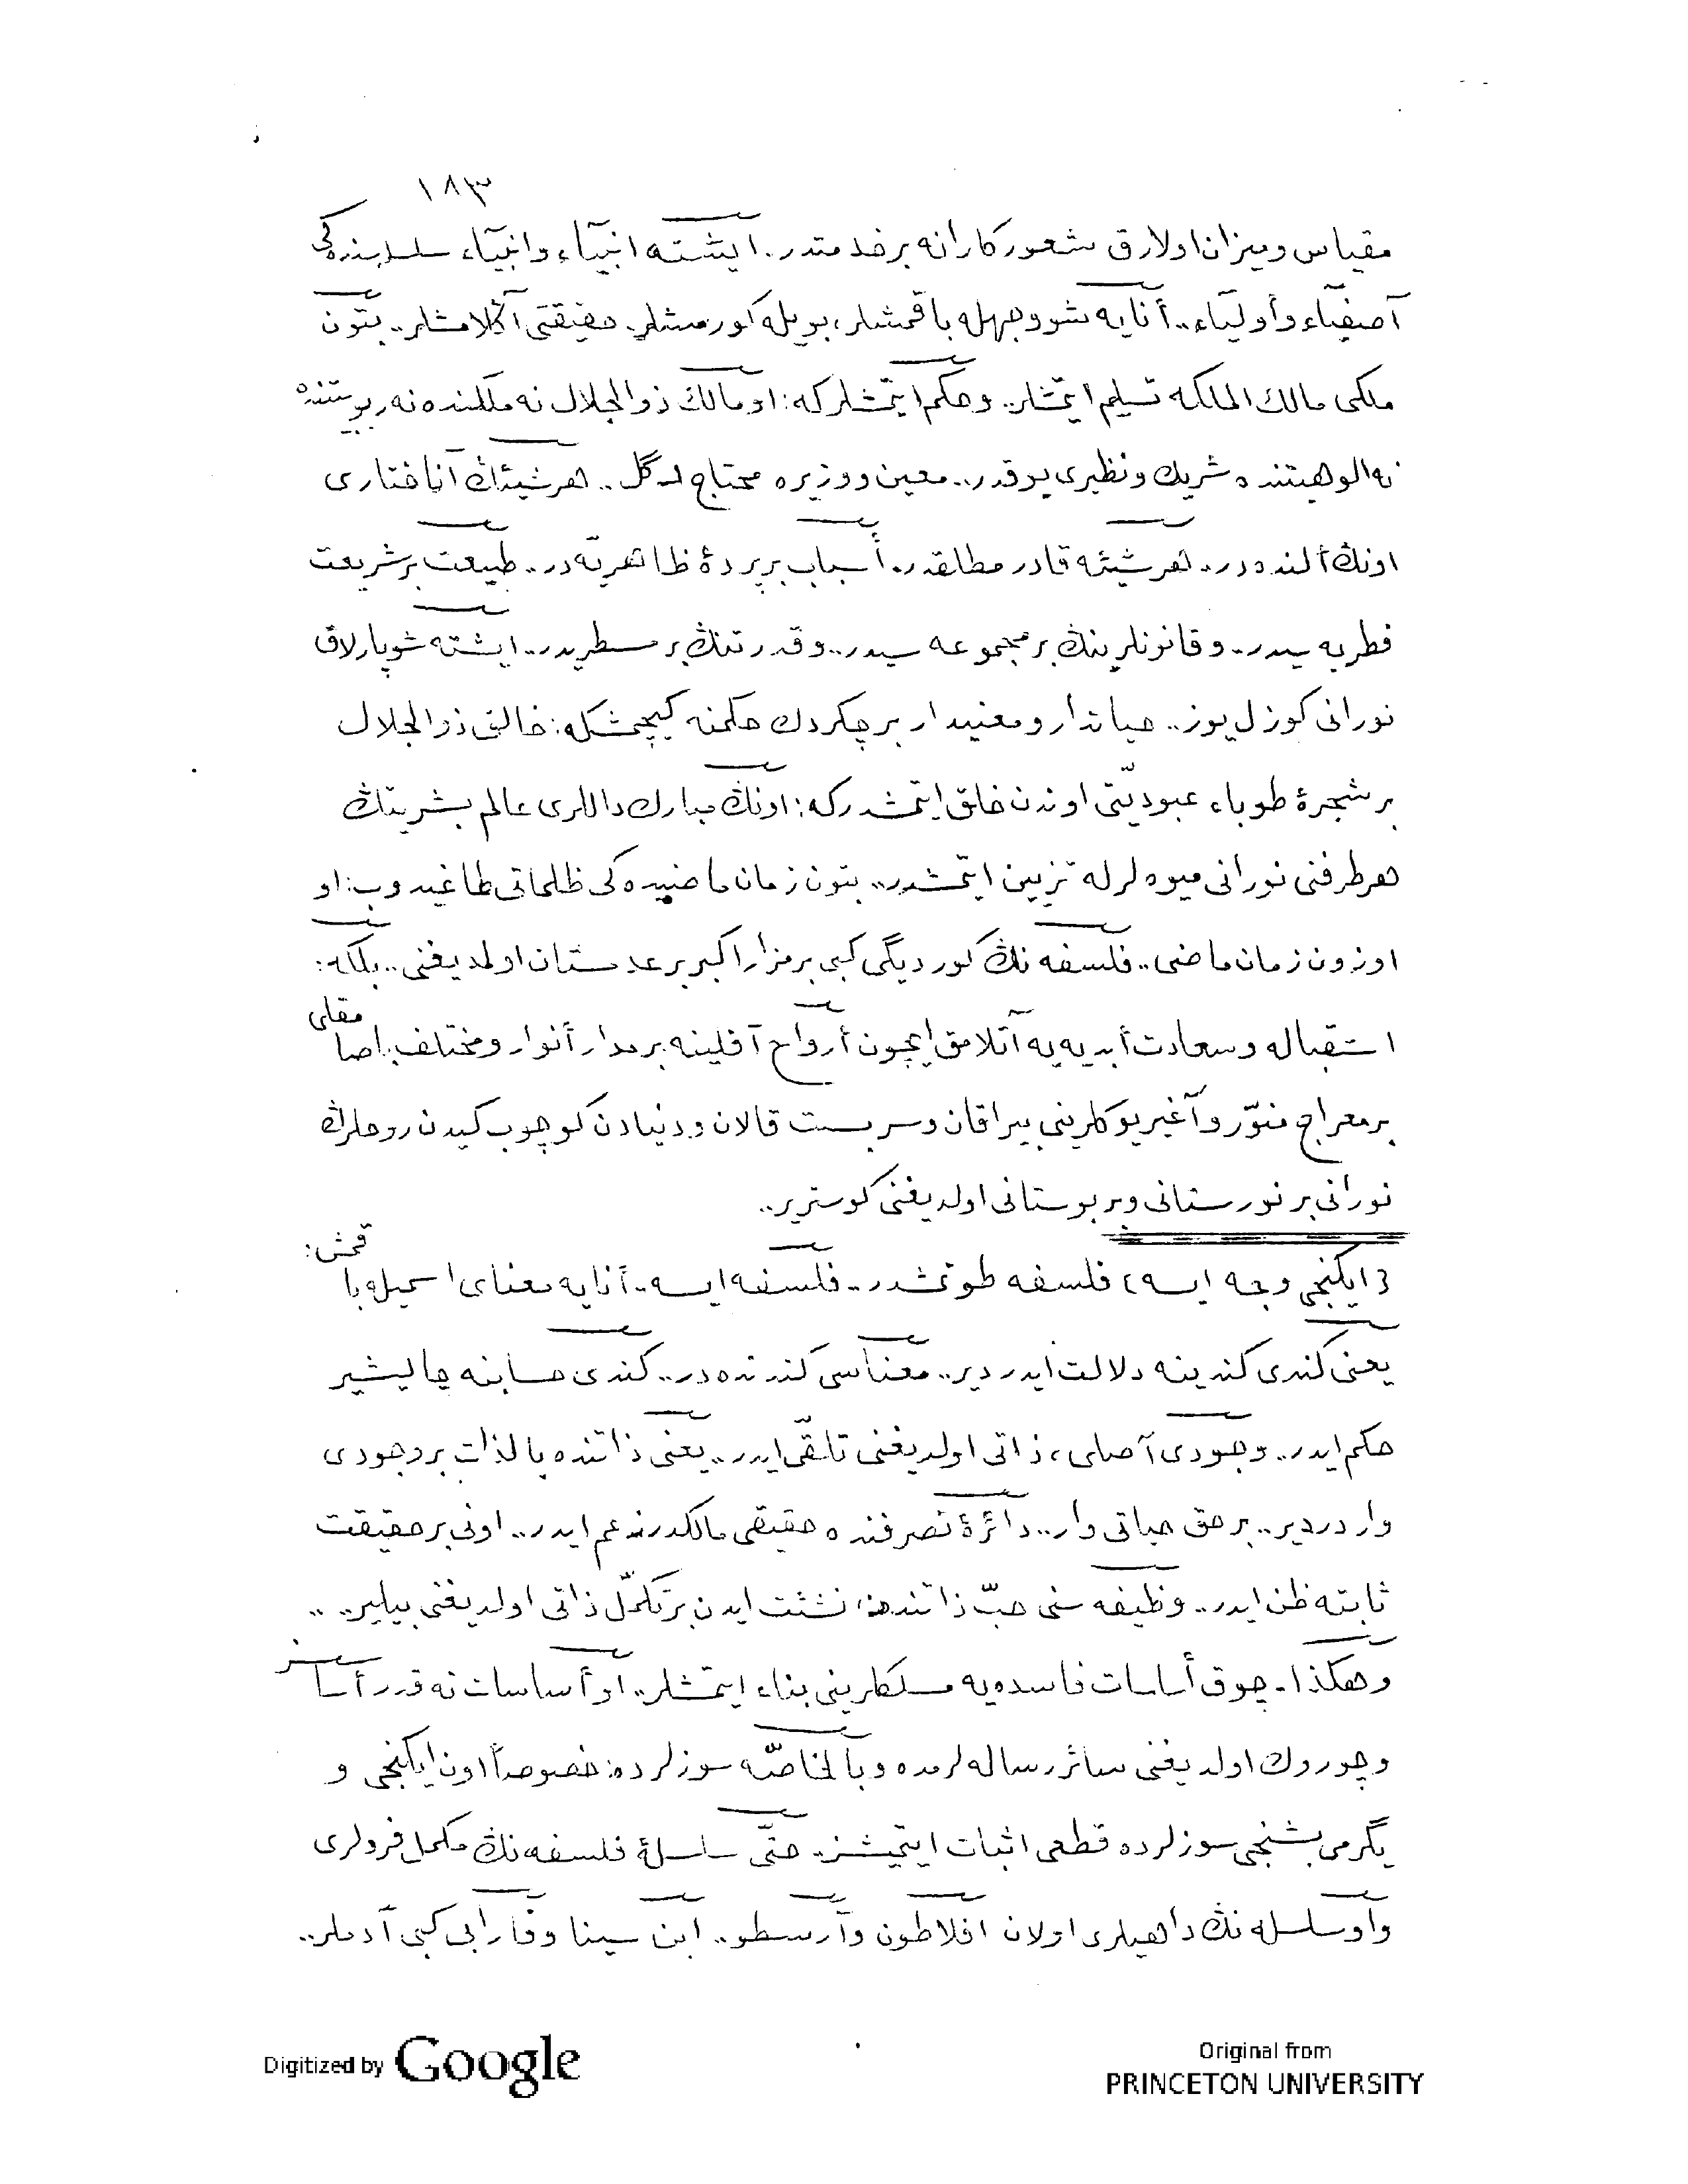 ١٨٣
مقياس وميزان اولارق شعوركارانه بر خدمتدر.. ايشته انبيآء وانبيآء سلسله‌سنده‌كى
آصفيآء وأوليآء.. أنايه شو وجهله باقمشلر، بويله كورمشلر. حقيقتى آڭلامشلر.. بتون
ملكى مالك الملكه تسليم ايتمشلر.. وحكم ايتمشلر كه: او مالك ذوالجلال نه ملكنده نه ربوبيتنده
نه الوهيتنده شريك ونظيرى يوقدر.. معين و وزيره محتاج دگل.. هر شيئك آناختارى
اونڭ ألنده‌در.. هر شيئه قادر مطلقدر. أسباب بر پردۀ ظاهريّه‌در.. طبيعت بر شريعت
فطريه سيدر.. وقانونلرينڭ بر مجموعه سيدر.. وقدرتنڭ بر مسطريدر.. ايشته شو پارلاق
نورانى كوزل يوز.. حياتدار ومعنيدار بر چكردك حكمنه كيچمشكه: خالق ذوالجلال
بر شجرۀ طوباء عبوديّتى اوندن خلق ايتمشدر كه: اونڭ مبارك داللرى عالم بشريتڭ
هر طرفنى نورانى ميوه لرله تزيين ايتمشدر.. بتون زمان ماضيده‌كى ظلماتى طاغيدوب: او
اوزون زمان ماضى.. فلسفه نڭ كورديگى كبى بر مزار اكبر بر عدمستان اولمديغنى.. بلكه:
استقباله وسعادت أبديه يه آتلامق ايچون أرواح آفلينه بر مدار أنوار ومختلف باصامقلى
بر معراج منوّر وآغير يوكلرينى بيراقان وسربست قالان ودنيادن كوچوب كيدن روحلرڭ
نورانى بر نورستانى وبر بوستانى اولديغنى كوسترير..
{ايكنجى وجه ايسه} فلسفه طوتمشدر.. فلسفه ايسه.. أنايه معناى اسميله باقمش:
يعنى كندى كندينه دلالت ايدر دير.. معناسى كندنده‌در.. كندى حسابنه چاليشير
حكم ايدر.. وجودى آصلى، ذاتى اولديغنى تلقّى ايدر.. يعنى ذاتنده بالذات بر وجودى
واردر دير.. بر حق حياتى وار.. دائرۀ تصرفنده حقيقى مالكدر زعم ايدر.. اونى بر حقيقت
ثابته ظن ايدر.. وظيفه سنى حبّ ذاتندن نشئت ايدن بر تكمّل ذاتى اولديغنى بيلير.. ..
وهكذا.. چوق أساسات فاسده‌يه مسلكلرينى بناء ايتمشلر.. او أساسات نه قدر أساسسز
وچوروك اولديغنى سائر رساله لرمده وبالخاصّه سوزلرده: خصوصاً اون ايكنجى و
يگرمى بشنجى سوزلرده قطعى اثبات ايتمشز. حتّى سلسلۀ فلسفه نڭ مكمل فردلرى
واو سلسله نڭ داهيلرى اولان افلاطون وآرسطو.. ابن سينا وفارابى كبى آدملر..
Digitized by Google
Original from
PRINCETON UNIVERSITY